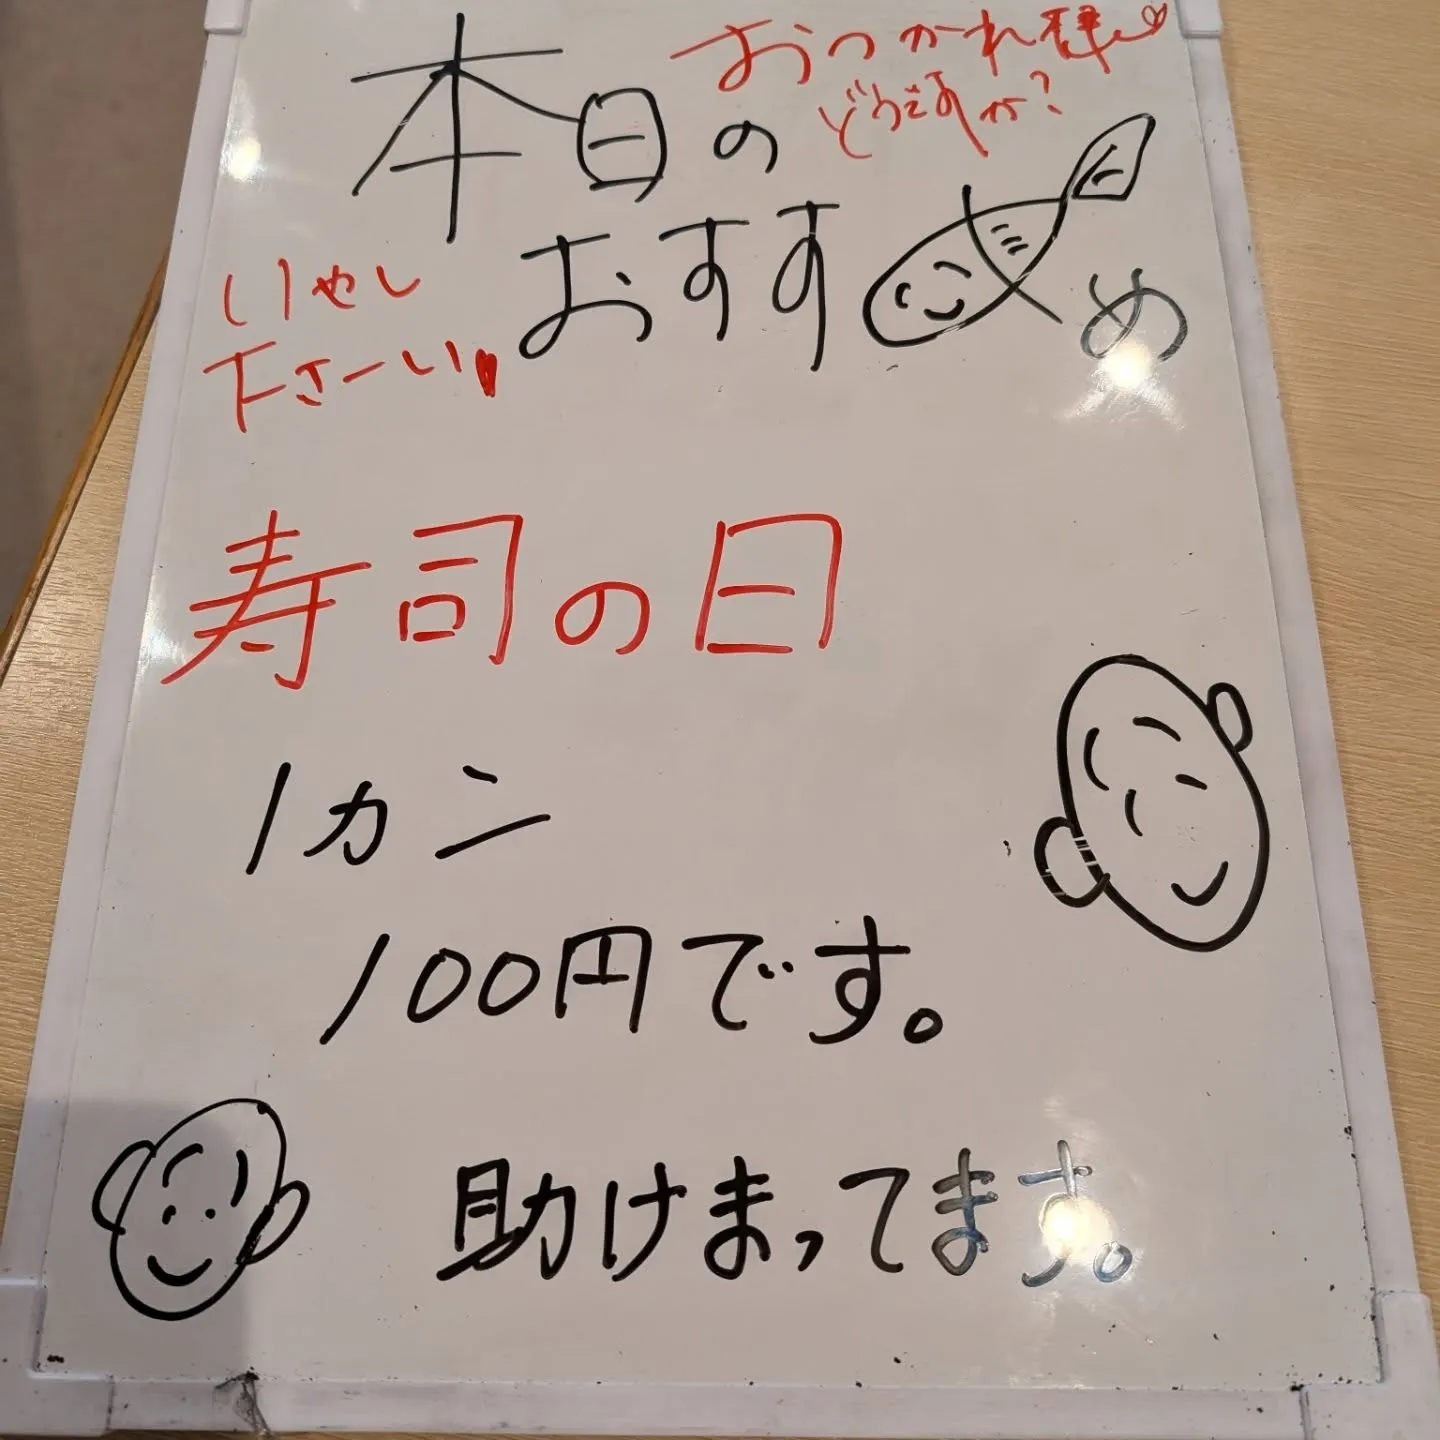 本日の
おつかれ様
どうですか?
おすすめ
いやし
下さーい
寿司の日
1カン
100円です。
助けまってます。